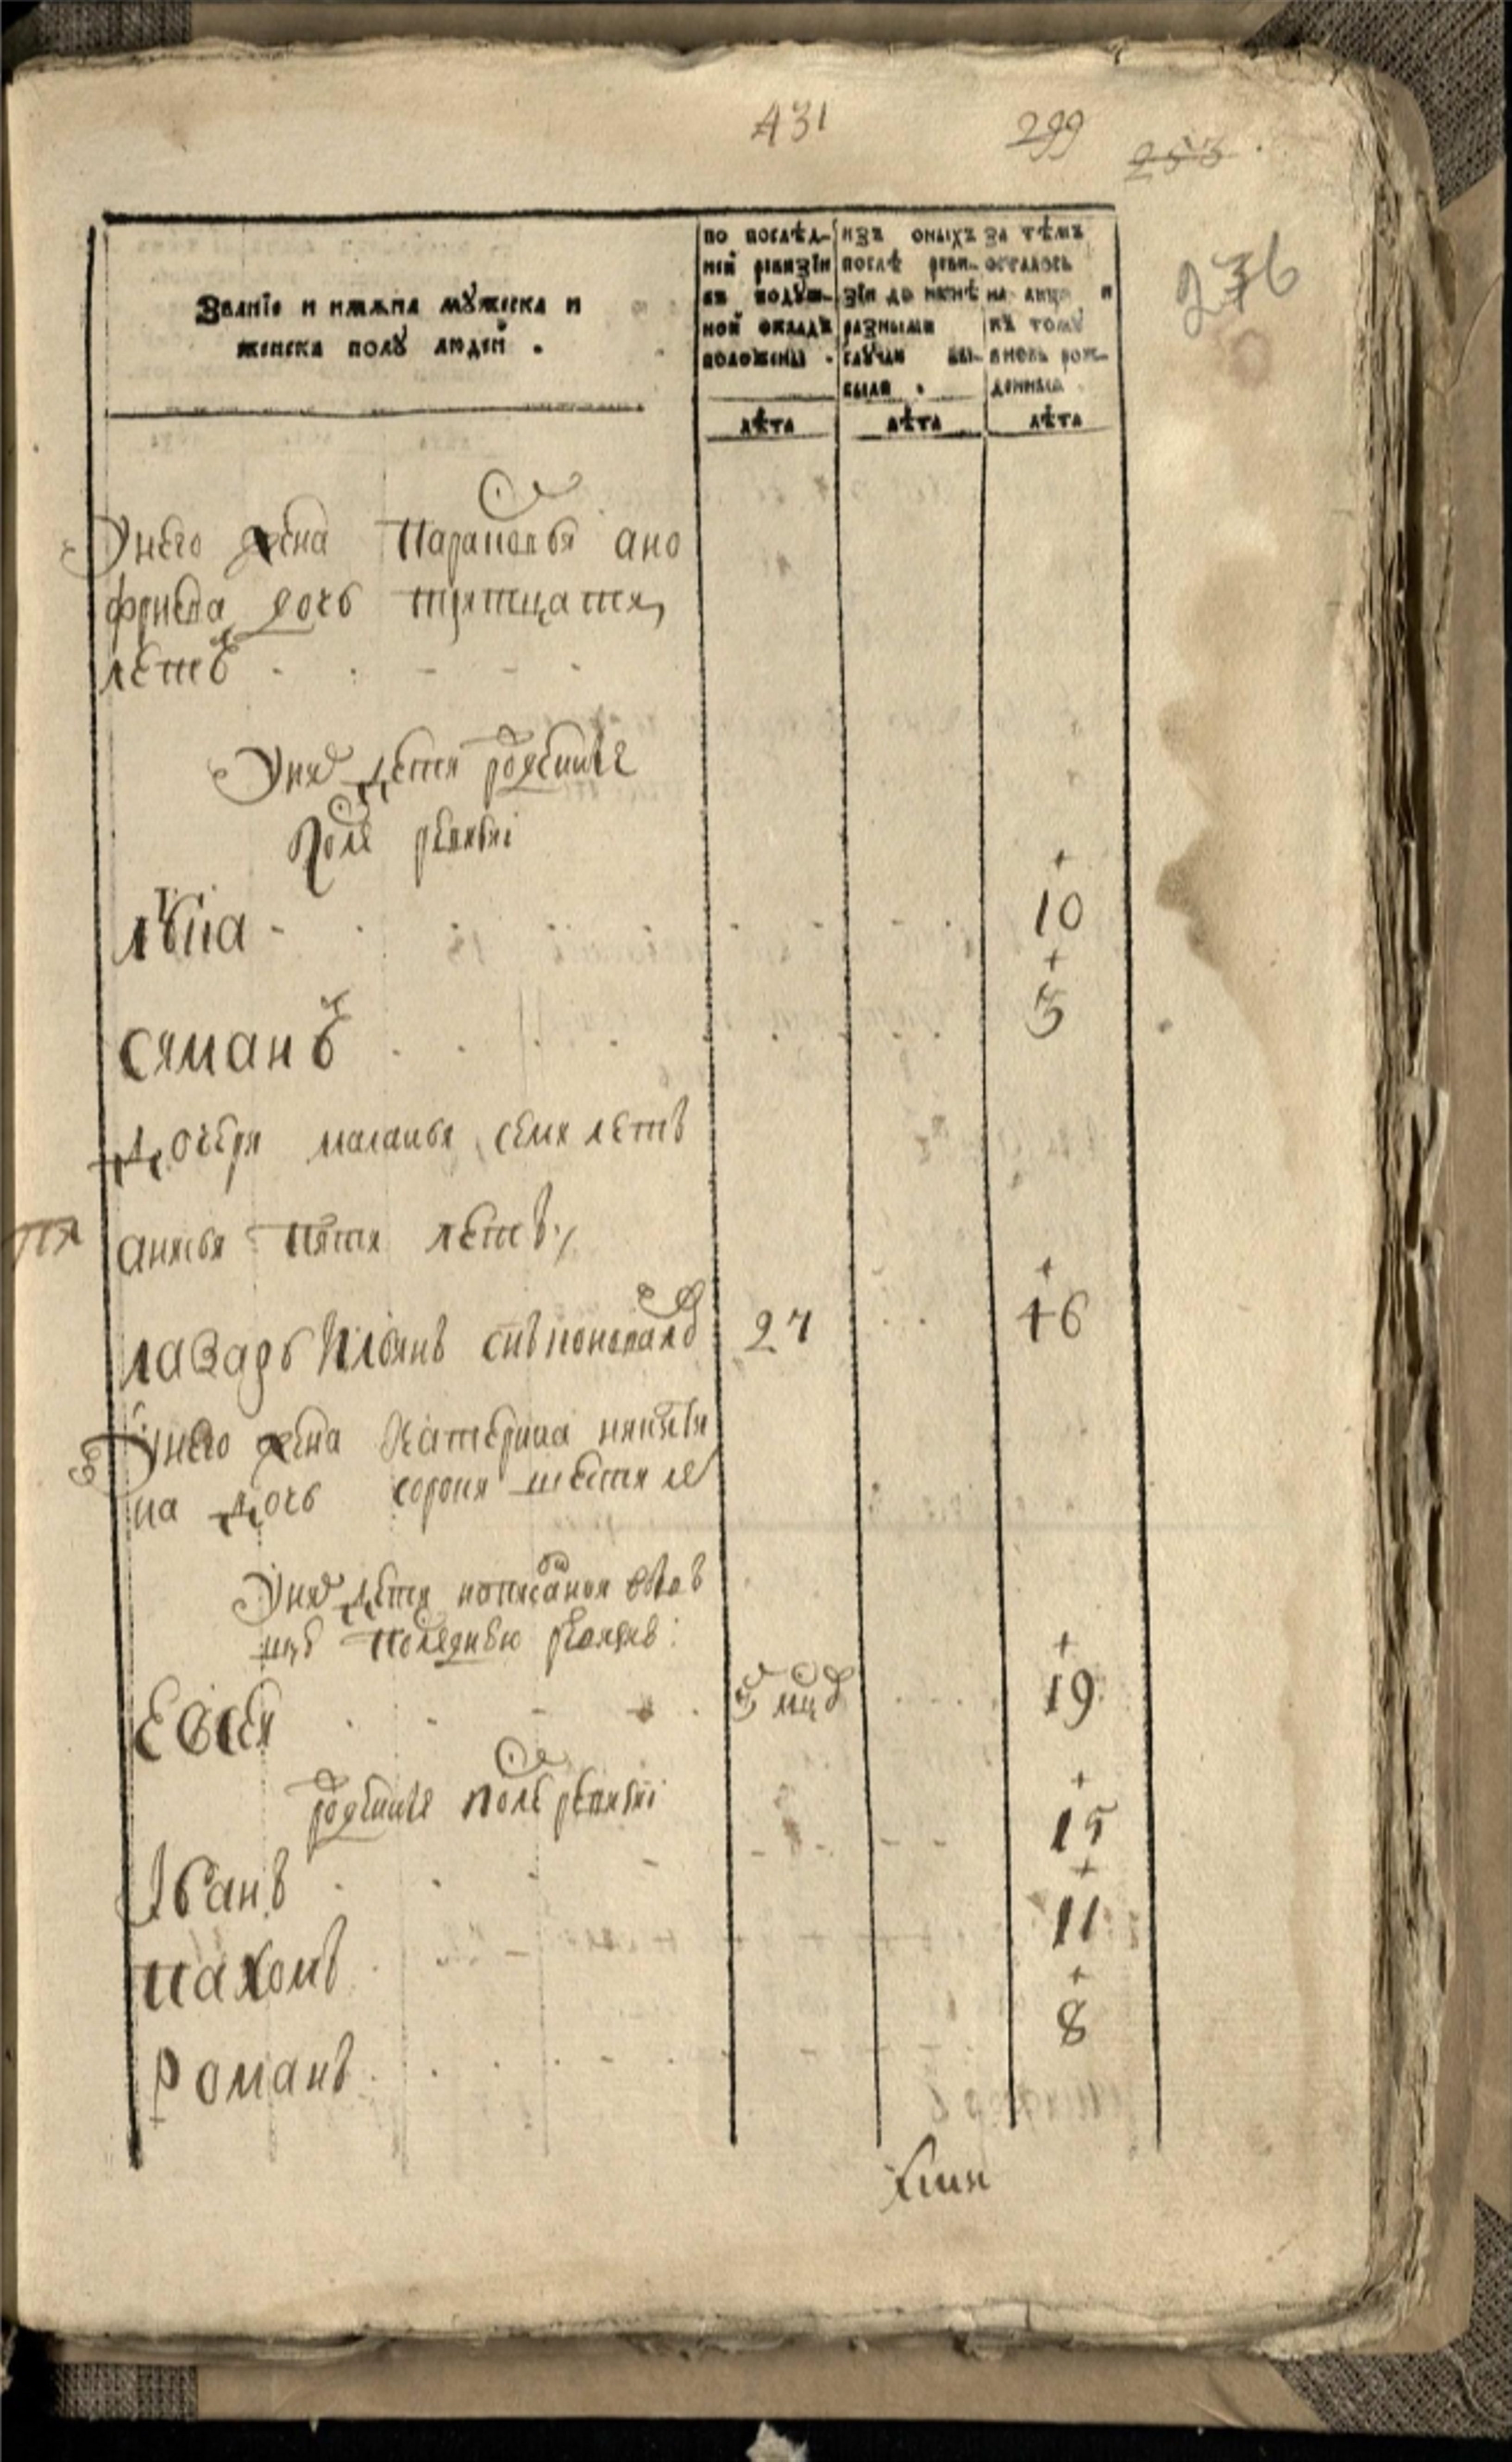 431 299 253
276
Званіе и имяна мужеска и
женска полу людей .
по послѣд-
ней ревизіи
въ подуш-
ной окладъ
положены .
изъ оныхъ
послѣ реви-
зіи до нынѣ
разными
случаи вы-
были .
за тѣмъ
осталось
на лицо и
къ тому
вновь рож-
денныхъ .
лѣта лѣта лѣта
Унего жена Парасковья ано
фриева дочь тритцати
летъ
Унихъ дети рожденые
После ревизиі
лука 10
симанъ 5
Дочери маланья семи летъ
анисья пяти летъ
лазарь Ильинъ снъ 27 46
Унего жена Катерина никити
на дочь сорока шести ле
Унихъ дети написаныя
последнею ревизию
Евсей 3 мцъ 19
рожденые После ревизиі
Іванъ 15
пахомъ 11
Романъ 8